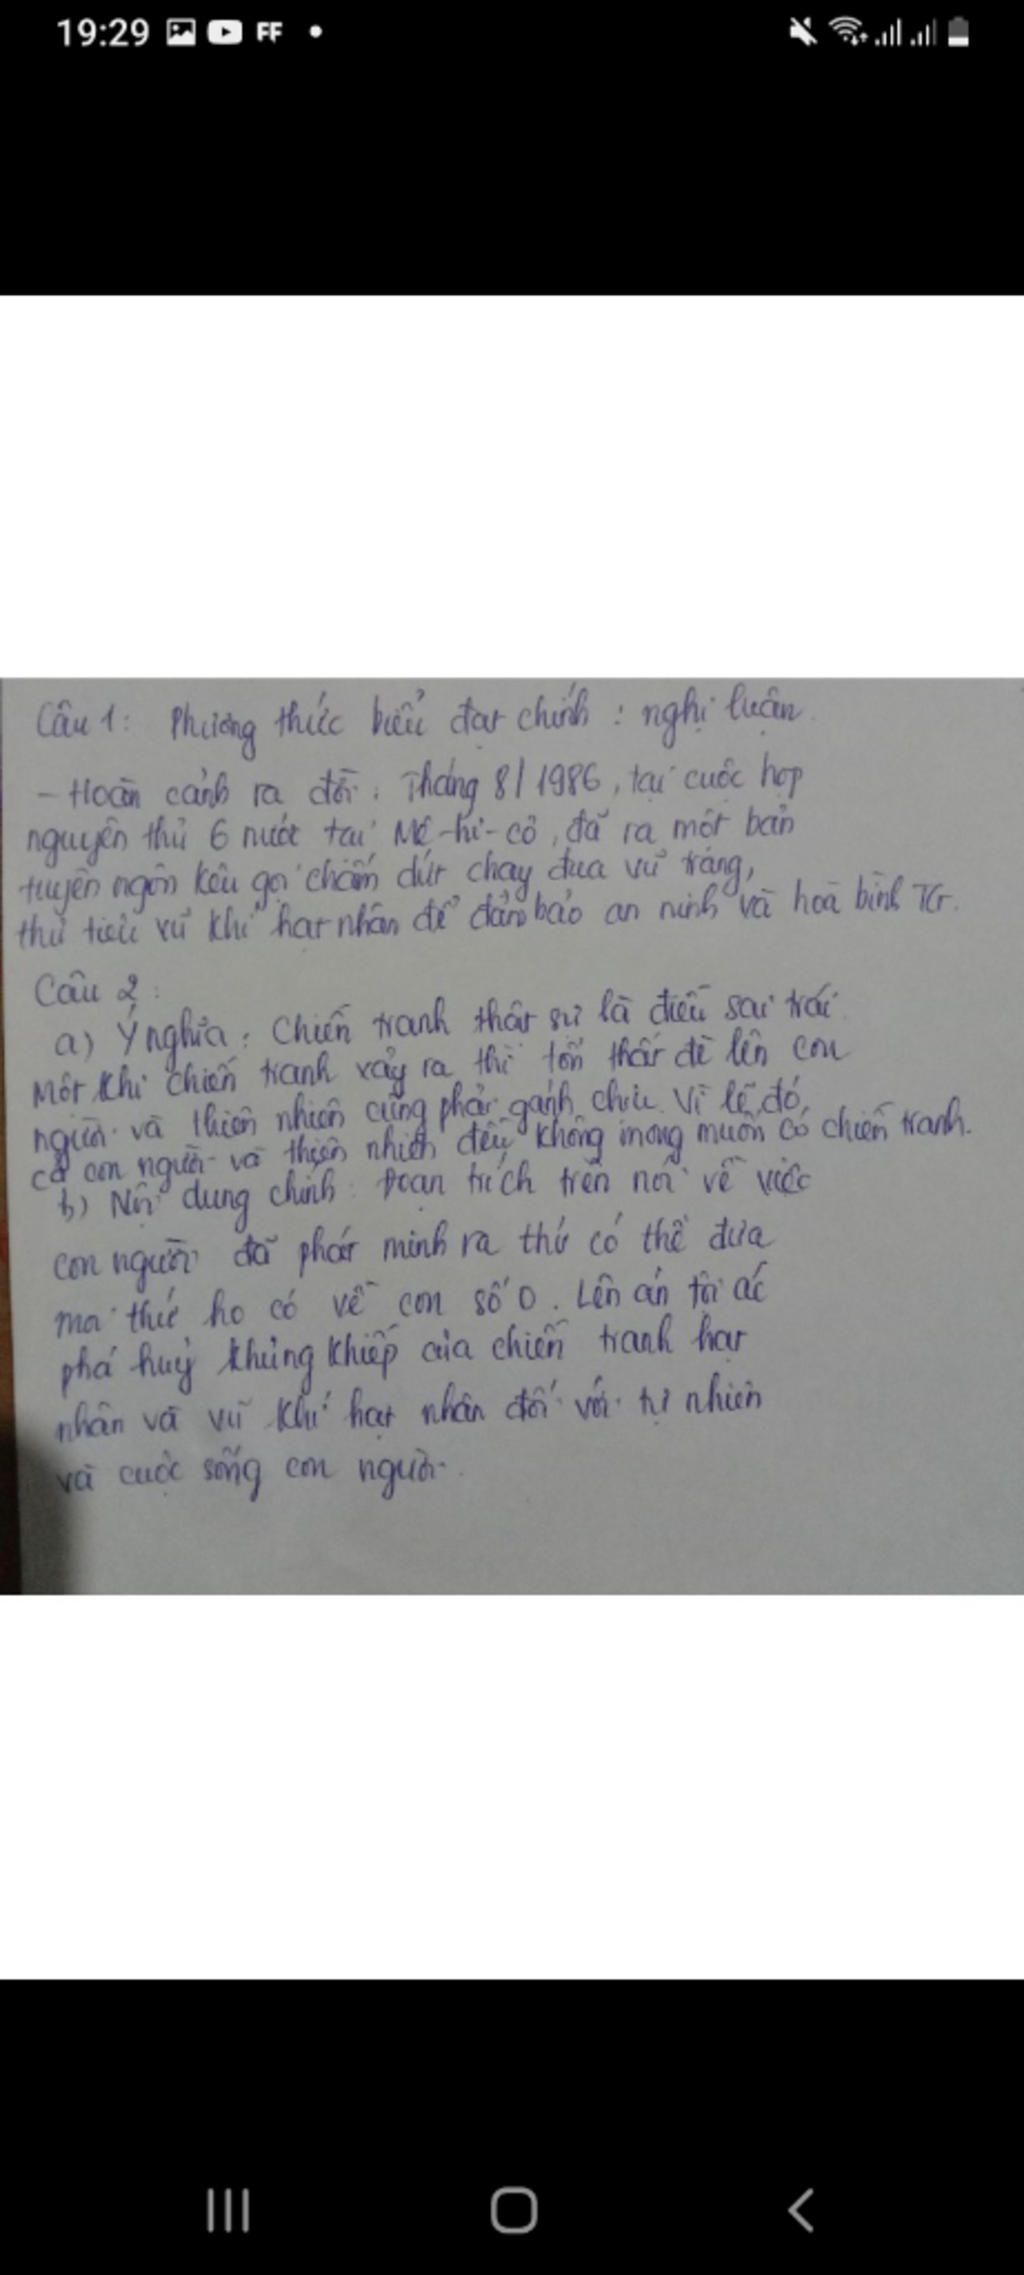 19:29 FF
Câu 1: Phương thức biểu đạt chính : nghị luận.
- Hoàn cảnh ra đời : Tháng 8/1986, tại cuộc họp
nguyên thủ 6 nước tại Mê-hi-cô, đã ra một bản
tuyên ngôn kêu gọi chấm dứt chạy đua vũ trang,
thủ tiêu vũ khí hạt nhân để đảm bảo an ninh và hoà bình TG.
Câu 2 :
a) Ý nghĩa : Chiến tranh thật sự là điều sai trái.
Một khi chiến tranh xảy ra thì tổn thất đè lên con
người và thiên nhiên cũng phải gánh chịu. Vì lẽ đó,
cả con người và thiên nhiên đều không mong muốn có chiến tranh.
b) Nội dung chính : Đoạn trích trên nói về việc
con người đã phát minh ra thứ có thể đưa
mọi thứ họ có về con số 0. Lên án tội ác
phá huỷ khủng khiếp của chiến tranh hạt
nhân và vũ khí hạt nhân đối với tự nhiên
và cuộc sống con người.